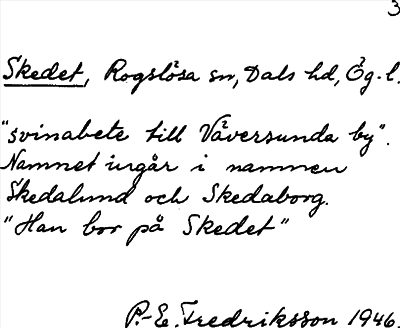 3
Skedet, Rogslösa sn, Dals hd, Ög. l.
"svinabete till Väversunda by".
Namnet ingår i namnen
Skedalund och Skedaborg.
"Han bor på Skedet"
P.-E. Fredriksson 1946.